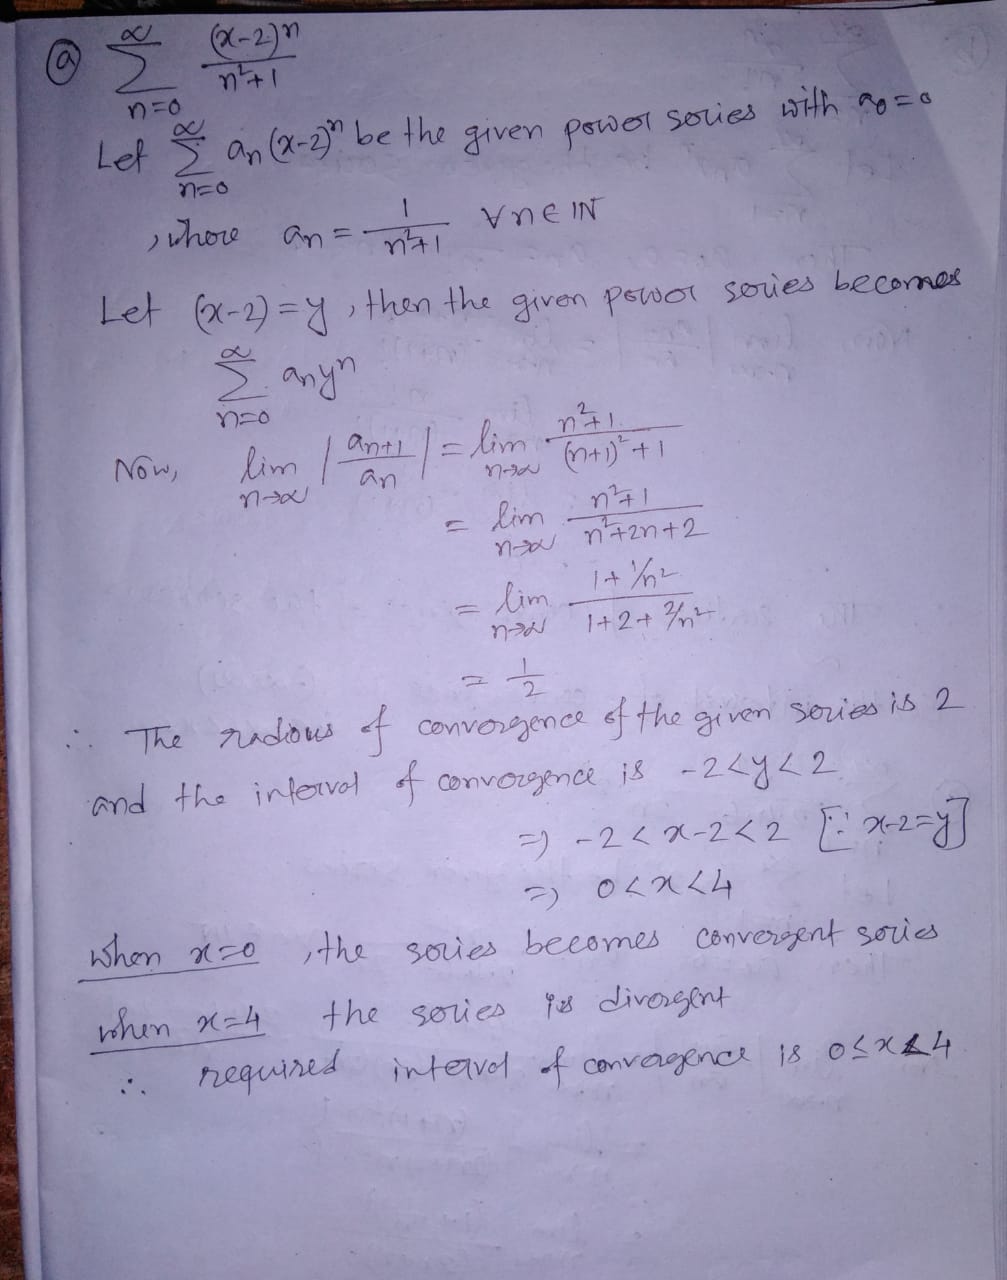 ⓐ ∞∑n=0 (x-2)ⁿ / n²+1
Let ∞∑n=0 an (x-2)ⁿ be the given power series with a0=0
, where an = 1 / n²+1 ∀ n ∈ IN
Let (x-2) = y , then the given power series becomes
∞∑n=0 an yⁿ
Now, lim n→∞ | an+1 / an | = lim n→∞ n²+1 / (n+1)²+1
= lim n→∞ n²+1 / n²+2n+2
= lim n→∞ 1+1/n² / 1+2+2/n²
= 1/2
∴ The radious of convergence of the given series is 2
and the interval of convergence is -2<y<2
=> -2 < x-2 < 2 [∵ x-2=y]
=> 0<x<4
when x=0 , the series becomes convergent series
when x=4 the series is divergent
∴ required interval of convergence is 0≤x<4